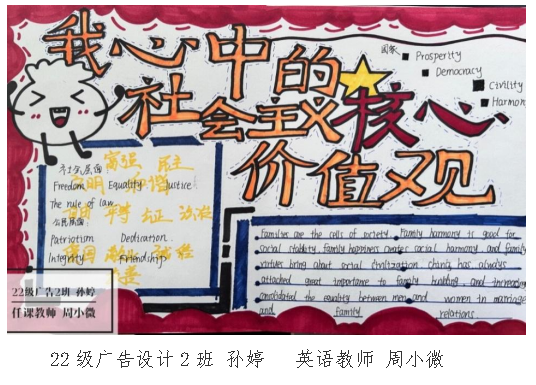 我心中的
社会主义核心
价值观
国家
Prosperity
Democracy
Civility
Harmony
社会层面:
富强 民主
Freedom Equality Justice
The rule of law
平等 公正 法治
公民层面:
Patriotism Dedication
Integrity Friendship
Families are the cells of society. Family harmony is good for
social stability, family happiness creates social harmony and family
virtues bring about social civilization. China has always
attached great importance to family building and
consolidated the equality between men and women in marriage
and family relations.
22级广告2班 孙婷
任课教师 周小微
22级广告设计2班 孙婷 英语教师 周小微